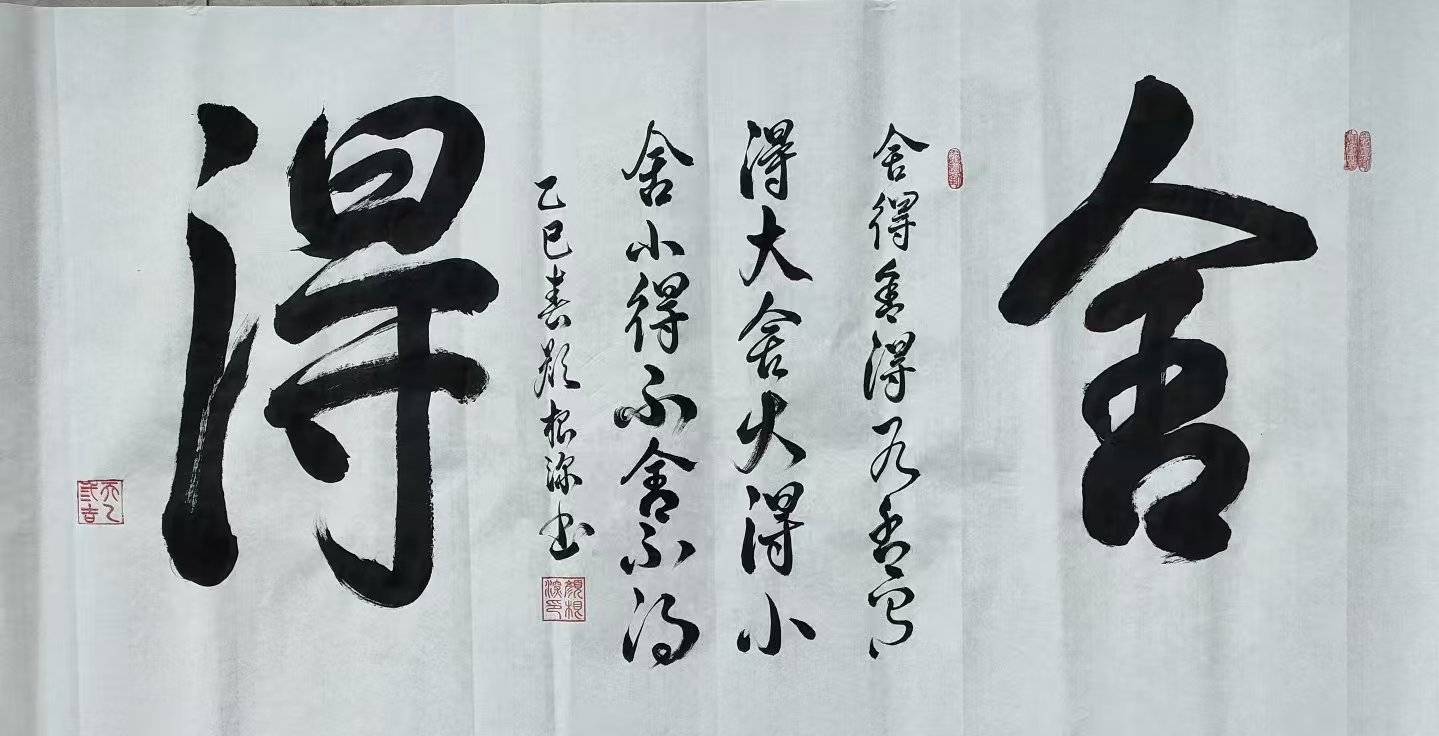 舍
舍得舍得有舍有
得大舍大得小
舍小得不舍不得
乙巳春颜根深书
顏根深印
得